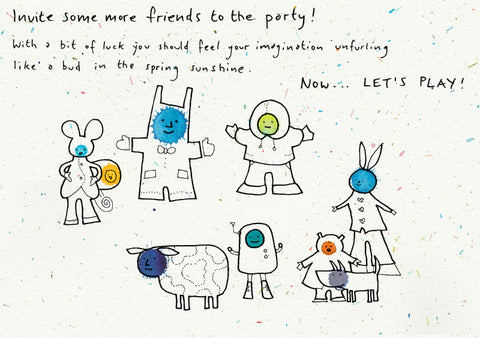 Invite some more friends to the party!
With a bit of luck you should feel your imagination unfurling
like a bud in the spring sunshine.
Now... LET'S PLAY!